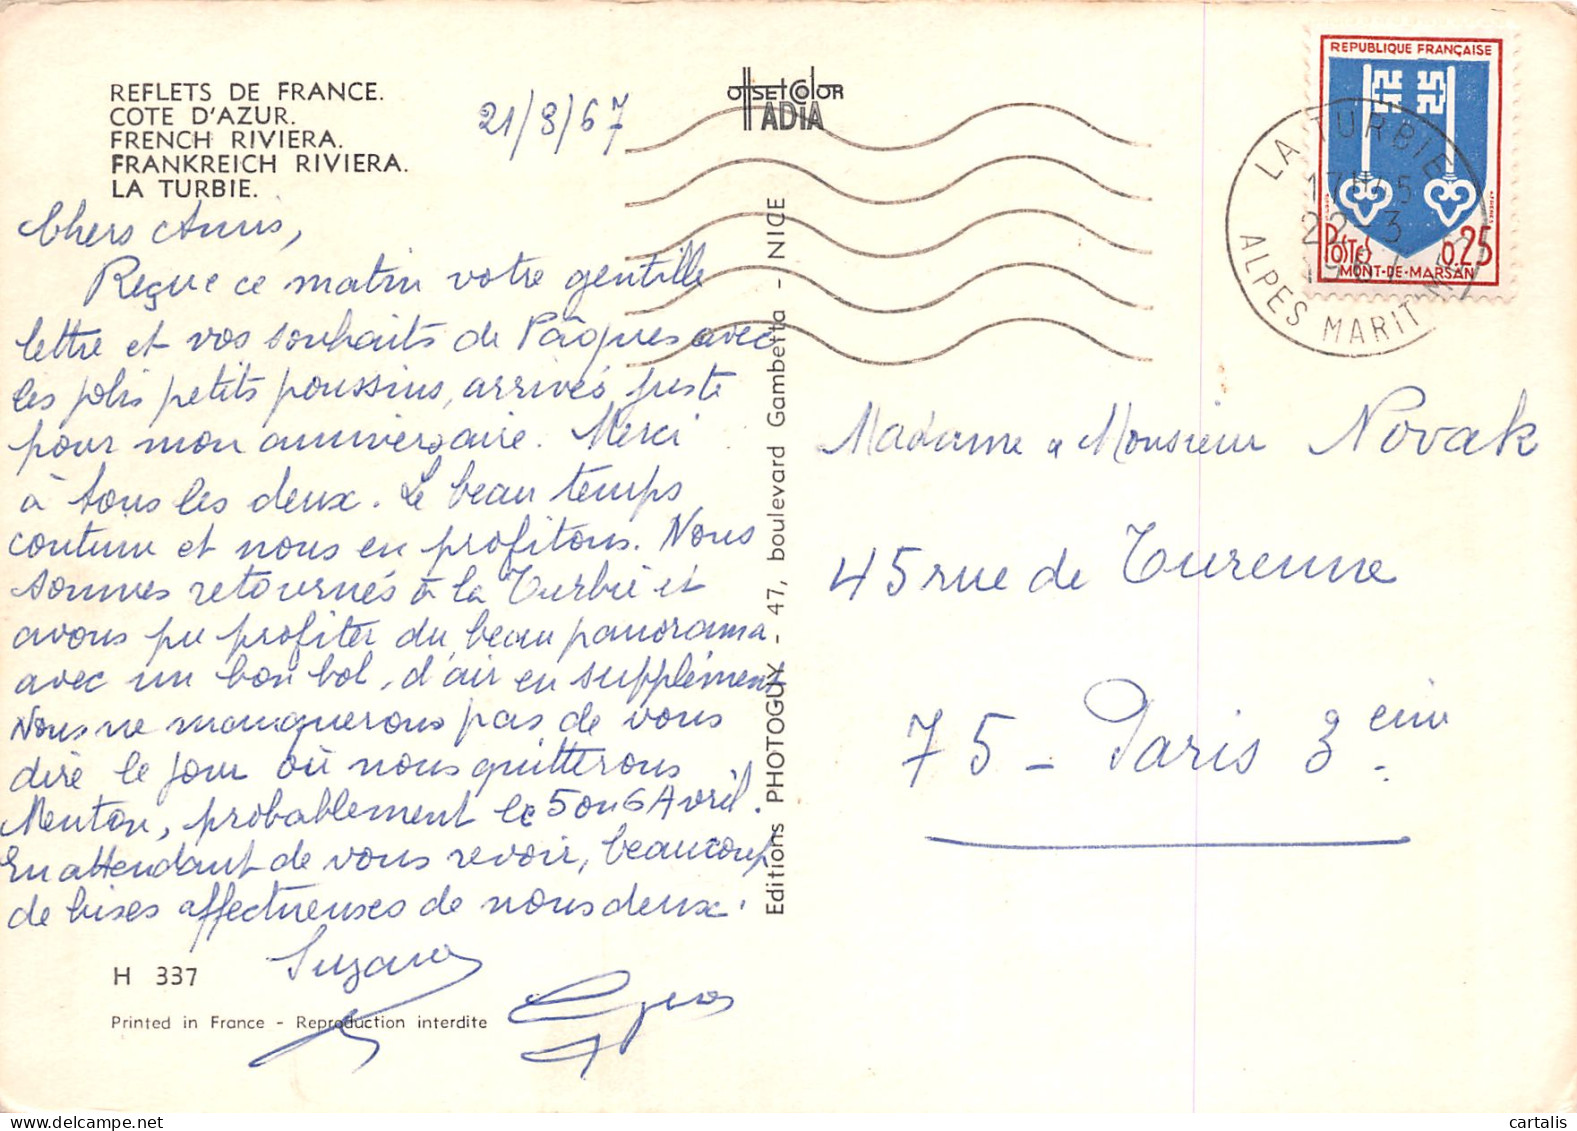 REFLETS DE FRANCE.
COTE D'AZUR.
FRENCH RIVIERA.
FRANKREICH RIVIERA.
LA TURBIE.
21/3/67
Chers Amis,
Reçue ce matin votre gentille
lettre et vos souhaits de Pâques avec
les jolis petits poussins, arrivés juste
pour mon anniversaire. Merci
à tous les deux. Le beau temps
continue et nous en profitons. Nous
sommes retournés à la Turbie et
avons pu profiter du beau panorama
avec un bon bol, d'air en supplément
Nous ne manquerons pas de vous
dire le jour où nous quitterons
Menton, probablement le 5 ou 6 Avril.
En attendant de vous revoir, beaucoup
de bises affectueuses de nous deux.
Suzanne
H 337
Printed in France - Reproduction interdite
offset color
ADIA
Editions PHOTOGUY - 47, boulevard Gambetta - NICE
REPUBLIQUE FRANÇAISE
POSTES 0,25
MONT-DE-MARSAN
LA TURBIE
17H45
22 3
1967
ALPES MARITMES
Madame & Monsieur Novak
45 rue de Turenne
75 - Paris 3ème.
cartalis